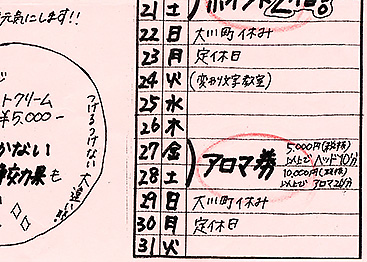 元気にします!!
トクリーム
¥5,000-
かない
効果も
つけるつけない大違い
21 土
22 日 大川町休み
23 月 定休日
24 火 (変わり文字教室)
25 水
26 木
27 金
28 土
アロマ券
5,000円(税抜)
以上で ヘッド10分
10,000円(税抜)
以上で アロマ20分
29 日 大川町休み
30 月 定休日
31 火